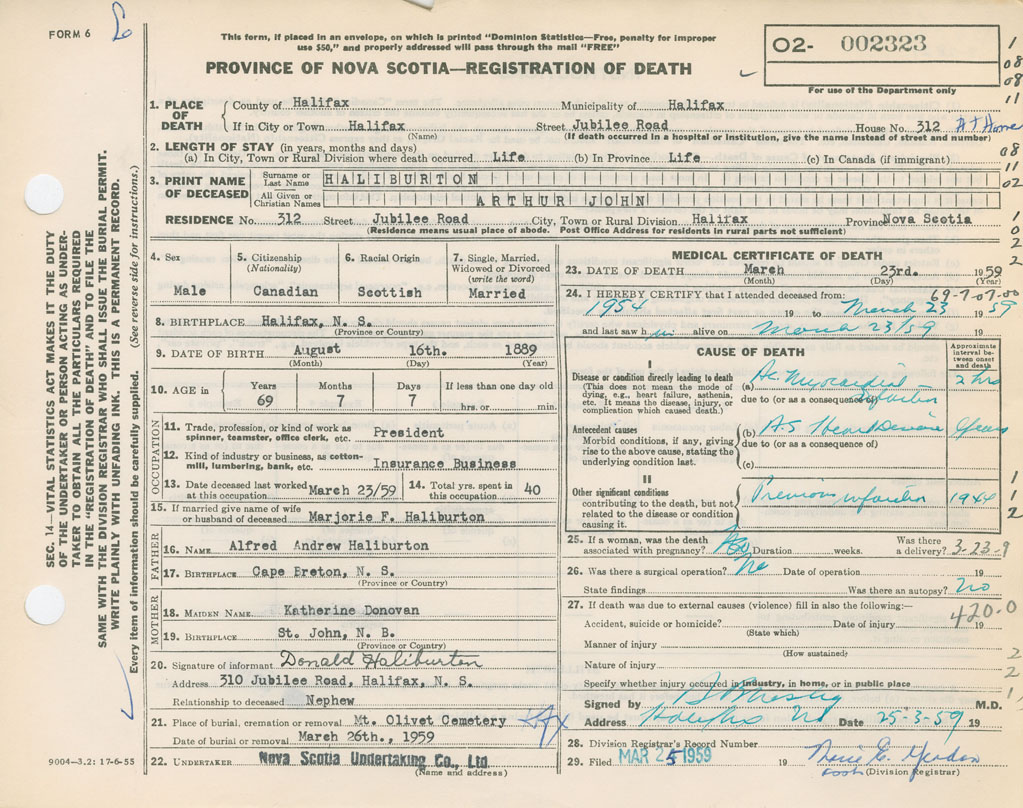 FORM 6
This form, if placed in an envelope, on which is printed "Dominion Statistics—Free, penalty for improper
use $50," and properly addressed will pass through the mail "FREE"
PROVINCE OF NOVA SCOTIA—REGISTRATION OF DEATH
02- 002323
For use of the Department only
1
08
08
11
08
11
02
1
0
2
2
SEC. 14—VITAL STATISTICS ACT MAKES IT THE DUTY
OF THE UNDERTAKER OR PERSON ACTING AS UNDER-
TAKER TO OBTAIN ALL THE PARTICULARS REQUIRED
IN THE "REGISTRATION OF DEATH" AND TO FILE THE
SAME WITH THE DIVISION REGISTRAR WHO SHALL ISSUE THE BURIAL PERMIT.
WRITE PLAINLY WITH UNFADING INK. THIS IS A PERMANENT RECORD.
Every item of information should be carefully supplied. (See reverse side for instructions.)
1. PLACE OF DEATH
County of Halifax Municipality of Halifax
If in City or Town Halifax Street Jubilee Road House No. 312 At Home
(Name) (If death occurred in a hospital or institution, give the name instead of street and number)
2. LENGTH OF STAY (in years, months and days)
(a) In City, Town or Rural Division where death occurred Life (b) In Province Life (c) In Canada (if immigrant)
3. PRINT NAME OF DECEASED
Surname or Last Name HALIBURTON
All Given or Christian Names ARTHUR JOHN
RESIDENCE No. 312 Street Jubilee Road City, Town or Rural Division Halifax Province Nova Scotia
(Residence means usual place of abode. Post Office Address for residents in rural parts not sufficient)
4. Sex
Male
5. Citizenship
(Nationality)
Canadian
6. Racial Origin
Scottish
7. Single, Married,
Widowed or Divorced
(write the word)
Married
8. BIRTHPLACE Halifax, N. S.
(Province or Country)
9. DATE OF BIRTH August 16th. 1889
(Month) (Day) (Year)
10. AGE in
Years Months Days If less than one day old
69 7 7 hrs. or min.
OCCUPATION
11. Trade, profession, or kind of work as
spinner, teamster, office clerk, etc. President
12. Kind of industry or business, as cotton-
mill, lumbering, bank, etc. Insurance Business
13. Date deceased last worked
at this occupation March 23/59
14. Total yrs. spent in
this occupation 40
15. If married give name of wife
or husband of deceased Marjorie F. Haliburton
FATHER
16. NAME Alfred Andrew Haliburton
17. BIRTHPLACE Cape Breton, N. S.
(Province or Country)
MOTHER
18. MAIDEN NAME Katherine Donovan
19. BIRTHPLACE St. John, N. B.
(Province or Country)
20. Signature of informant Donald Haliburton
Address 310 Jubilee Road, Halifax, N. S.
Relationship to deceased Nephew
21. Place of burial, cremation or removal Mt. Olivet Cemetery Hfx
Date of burial or removal March 26th., 1959
22. UNDERTAKER Nova Scotia Undertaking Co., Ltd
(Name and address)
9004—3.2: 17-6-55
MEDICAL CERTIFICATE OF DEATH
23. DATE OF DEATH March 23rd. 1959
(Month) (Day) (Year)
24. I HEREBY CERTIFY that I attended deceased from: 69-7-07-00
1954 19 to March 23 1959
and last saw him alive on March 23/59 19
CAUSE OF DEATH
Approximate
interval be-
tween onset
and death
I
Disease or condition directly leading to death
(This does not mean the mode of
dying, e.g., heart failure, asthenia,
etc. It means the disease, injury, or
complication which caused death.)
(a) Ac. Myocardial — 2 hrs
due to (or as a consequence of) infarction
Antecedent causes
Morbid conditions, if any, giving
rise to the above cause, stating the
underlying condition last.
(b) A-S Heart Disease Years
due to (or as a consequence of)
(c)
II
Other significant conditions
contributing to the death, but not
related to the disease or condition
causing it.
Previous infarction 1944
1
1
1
2
25. If a woman, was the death
associated with pregnancy? Duration weeks. Was there
a delivery? 3-23-9
26. Was there a surgical operation? No Date of operation 19
State findings Was there an autopsy? No
27. If death was due to external causes (violence) fill in also the following:—
420-0
Accident, suicide or homicide? Date of injury 19
(State which)
Manner of injury
(How sustained)
2
Nature of injury
2
Specify whether injury occurred in industry, in home, or in public place
1
Signed by M.D.
Address Halifax NS Date 25-3-59 19
28. Division Registrar's Record Number
29. Filed MAR 25 1959 19
(Division Registrar)